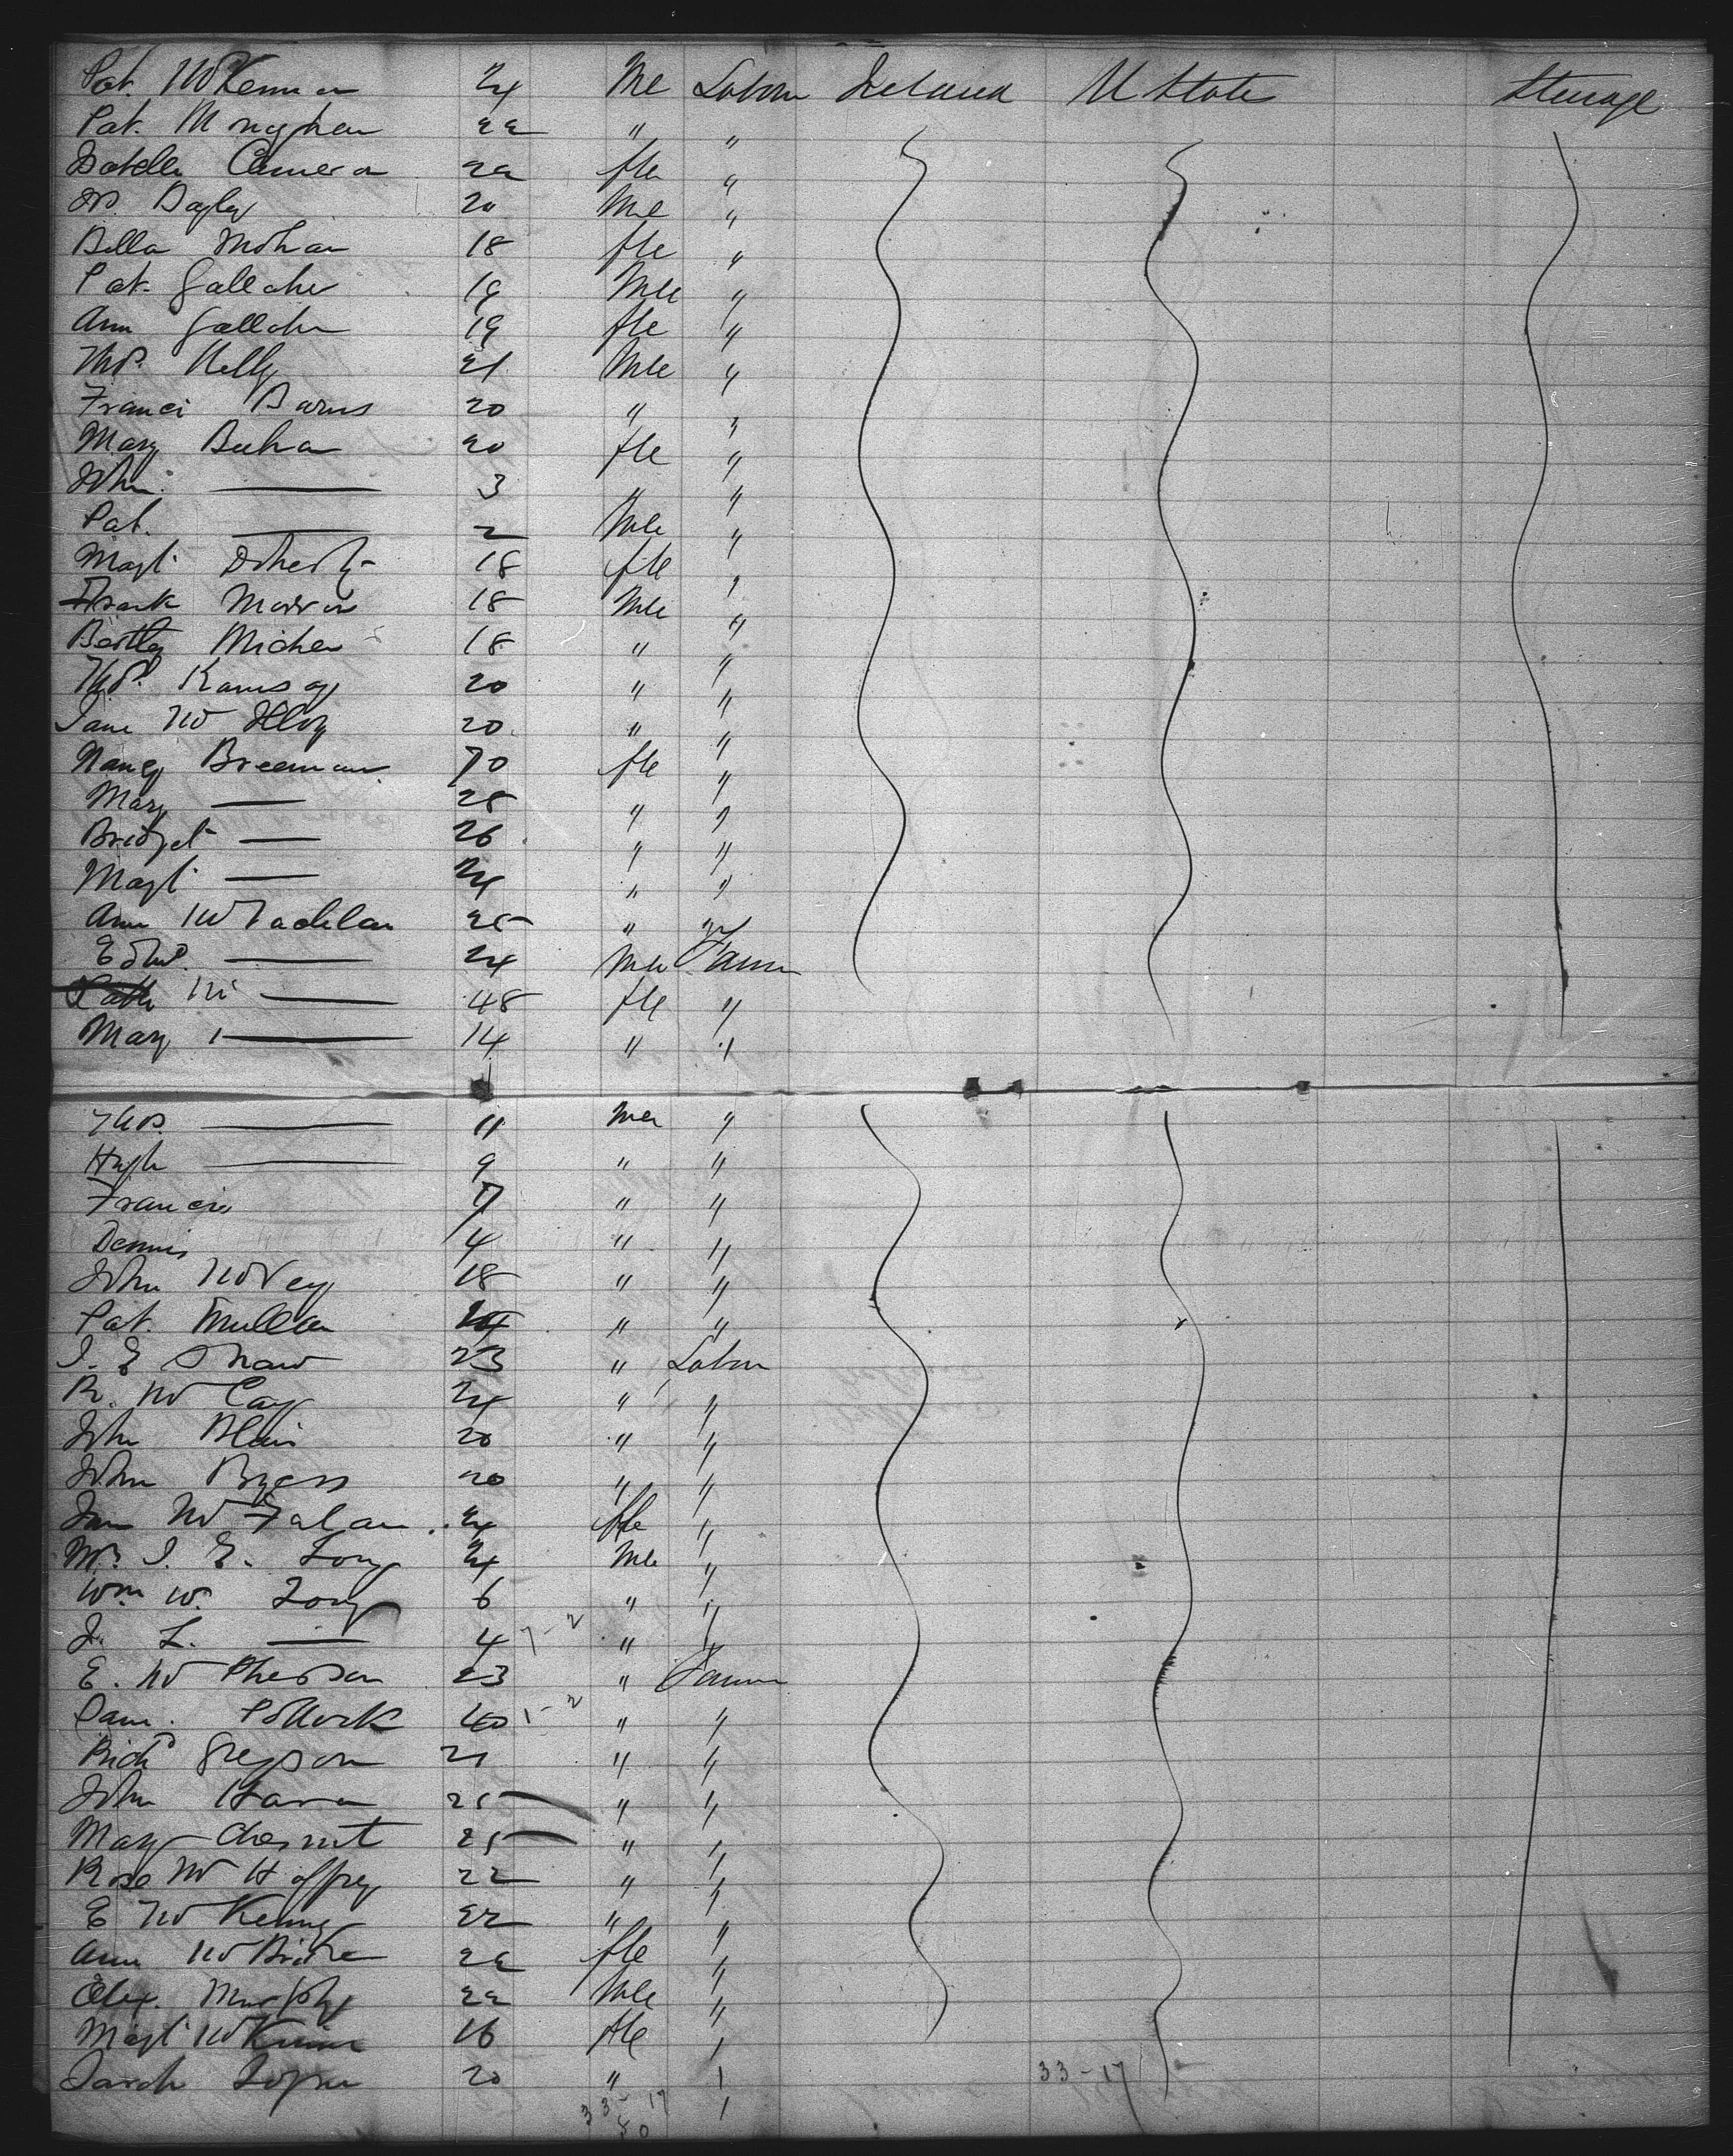 Pat. McKenna 24 Mle Labour Ireland U States Steerage
Pat. Monaghan 22 " "
Isabella Cameron 22 fle "
Jas. Bayley 20 Mle "
Bella Mohan 18 fle "
Pat. Gallaher 19 Mle "
Ann Gallaher 19 fle "
Thos. Kelly 21 Mle "
Francis Barns 20 " "
Mary Beehan 20 fle "
John. — 3 " "
Pat. — 2 Mle "
Magt. Doherty 18 fle "
Frank Morran 18 Mle "
Bartley 18 " "
Thos. Ramsay 20 " "
Jane McIlroy 20 " "
Nancy Breeman 70 fle "
Mary — 28 " "
Bridget — 26 " "
Magt — 24 " "
Ann McLachlan 25 " "
Edwd. — 24 Mle Farmer
— 48 fle "
Mary — 14 " "
Thos. — 11 Mle "
Hugh — 9 " "
Francis 7 " "
Dennis 4 " "
John McVey 18 " "
Pat. Mullan " "
J. E Shaw 23 " Labour
R. McCay 24 " "
John Blair 20 " "
John Byers 20 " "
McFalan 24 fle "
J. E. Long 24 Mle "
Wm W. Long 6 " "
J. L. — 4 7-2 " "
E. McPherson 23 " Farmer
Sam. Pollock 40 1-2 " "
Richd Greyson 21 " "
John 25 " "
Mary Chesnut 25 " "
Rose McHaffrey 22 " "
E McKenny 22 " "
Ann McBride 22 fle "
Alex. Murphy 22 Mle "
Magt McKinna 16 fle "
Sarah 20 " " 33-17
33-17 "
50